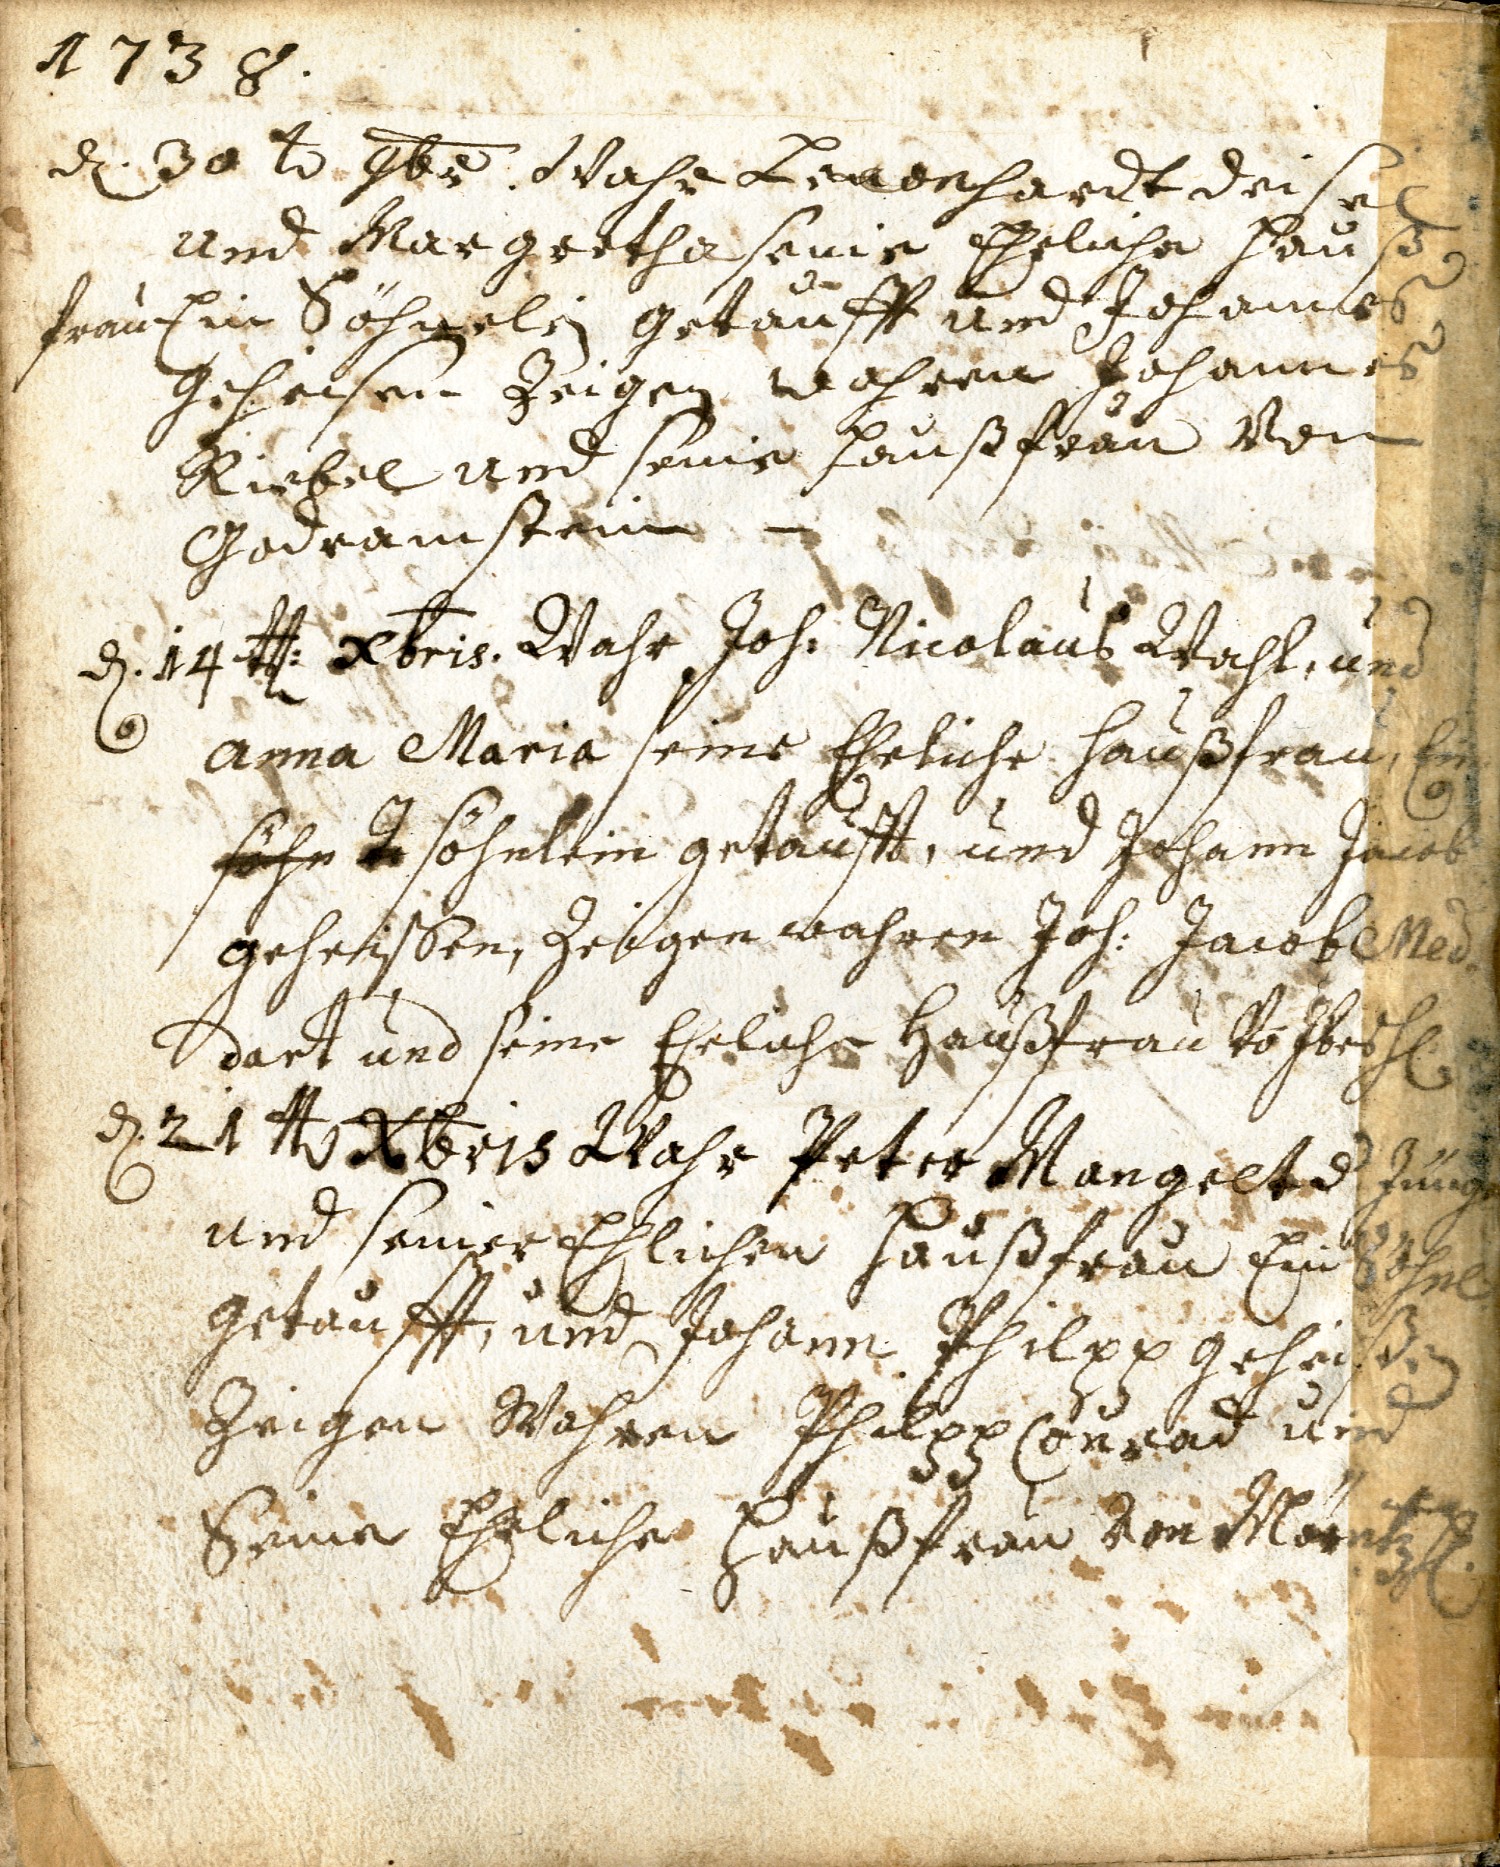 1738.
d. 30 t 9br. Wahr Leaonhardt deisel
und Margretha seine Eheliche Hauß
frau Ein Söhnelein getaufft und Johannes
geheisen Zeigen wahren Johannes
Riebel und seine Haußfrau Von
Godramstein –
d. 14 tt: Xbris. Wahr Joh: Nicolaus Wahl, und
anna Maria seine Eheliche Haußfrau, Ein
söhn söhnlein getaufft, und Johann Jacob
geheissen, Zeigen wahren Joh: Jacob Med-
dart und seine Eheliche Haußfrau Vo
d. 21 tt Xbris Wahr Peter Mangelt d Jünge
und seiner Ehlichen Haußfrau Ein Söhnl.
getaufft, und Johann Philpp geheißen
Zeigen Wahren Philpp Conrad und
Seine Eheliche Haußfrau von Mörtzh.